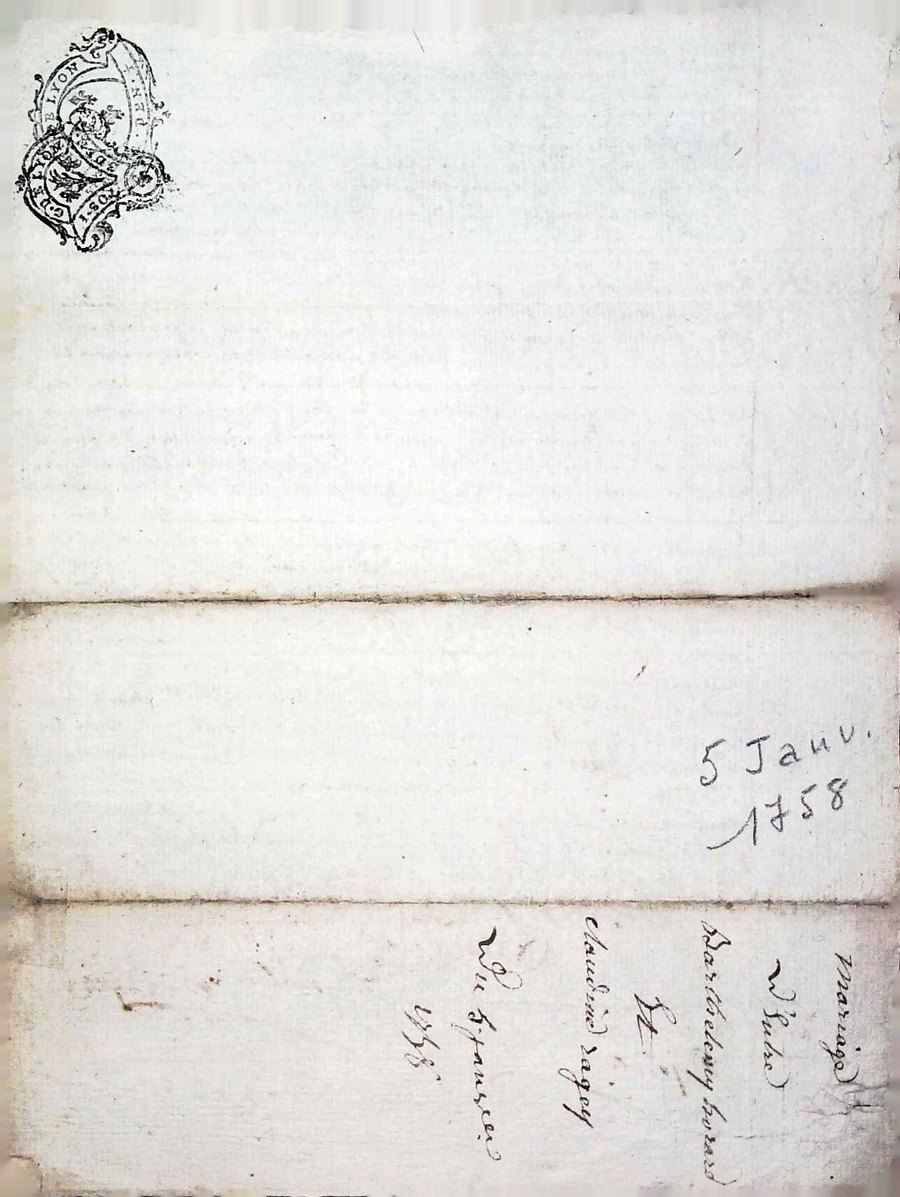 DE LYON
GEN.
G. DE LYON
5 Janv.
1758
Mariage
D'Entre
Barthelemy borard
Et
claudine ragey
Du 5 janvier
1758